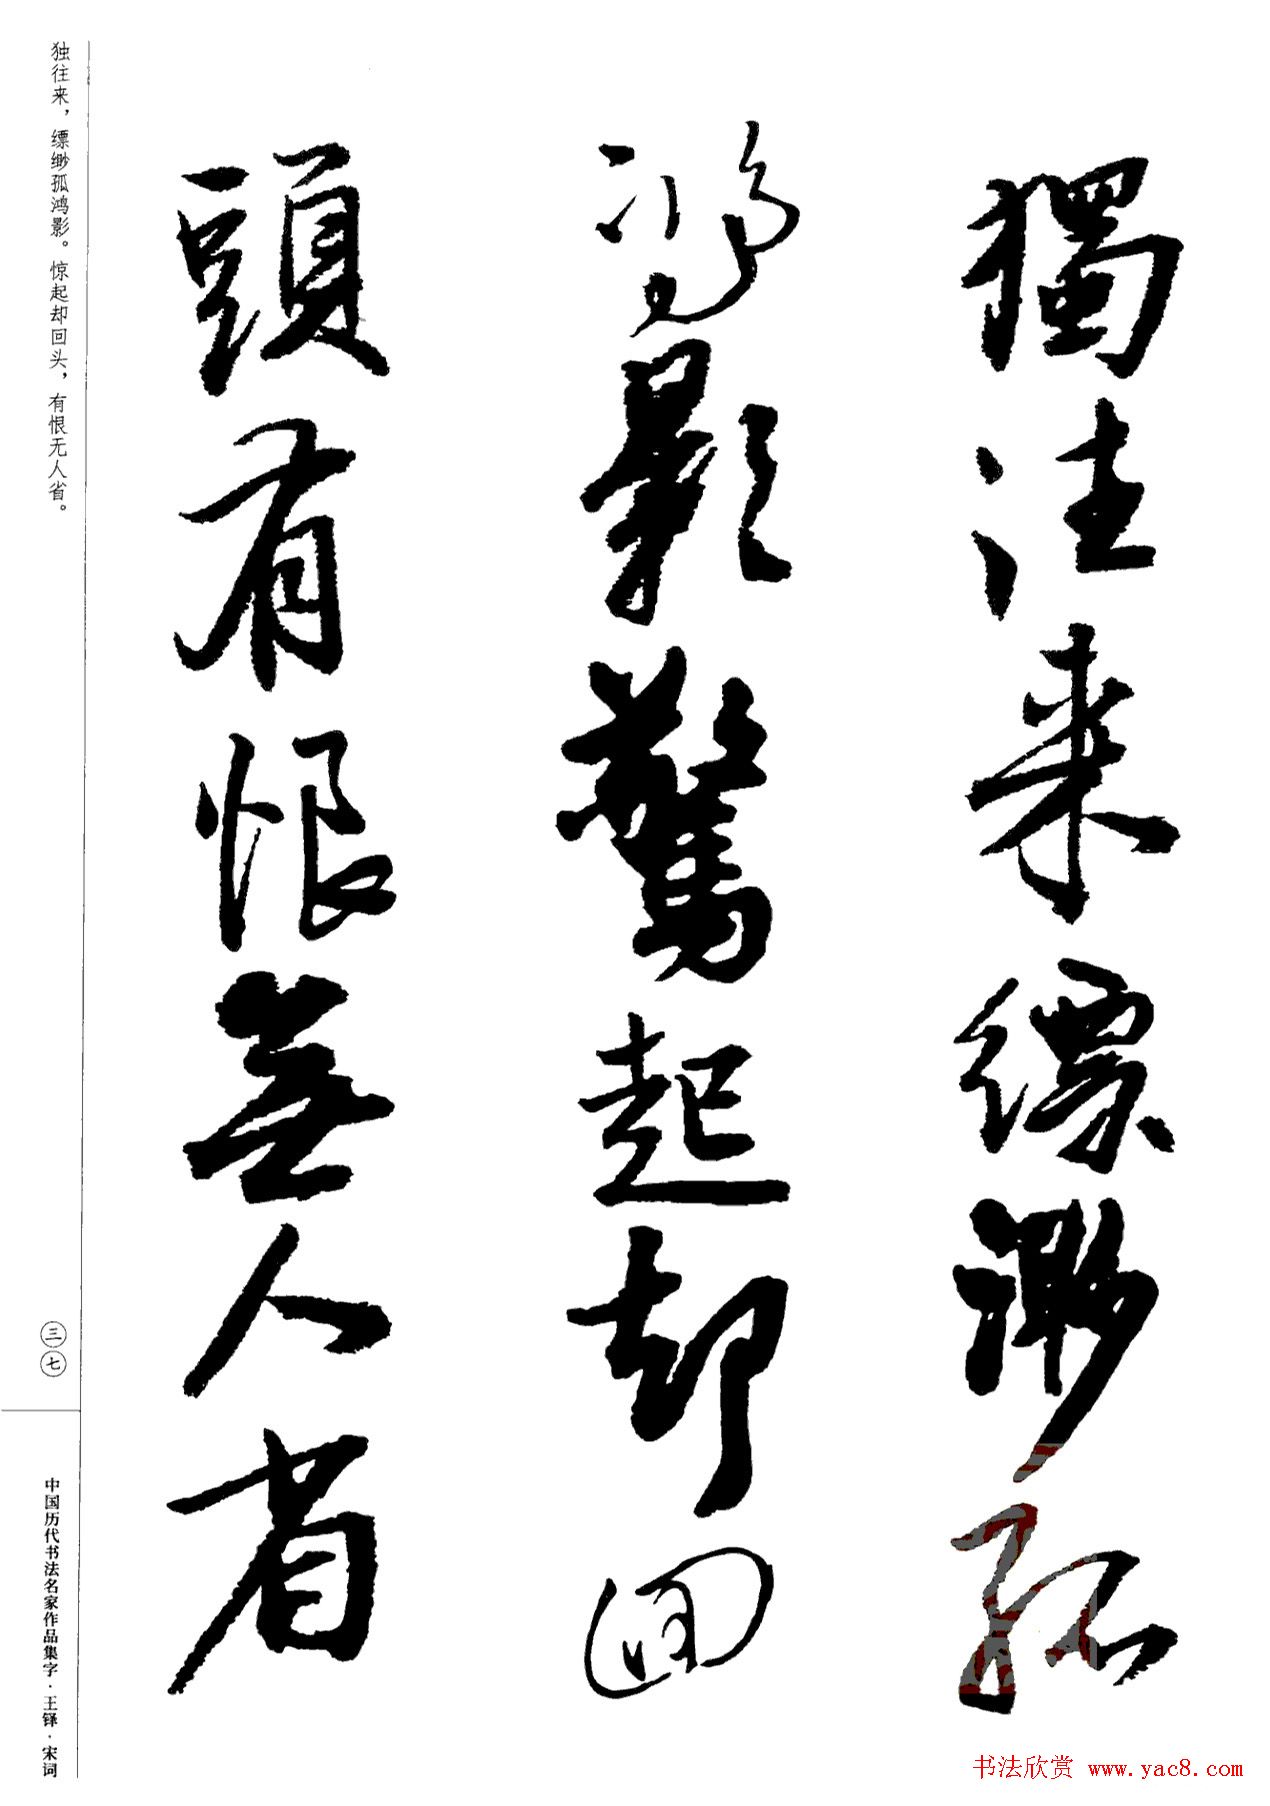 獨往来縹緲孤
鴻影驚起却回
頭有恨無人省
独往来，缥缈孤鸿影。惊起却回头，有恨无人省。
三七
中国历代书法名家作品集字·王铎·宋词
书法欣赏 www.yac8.com